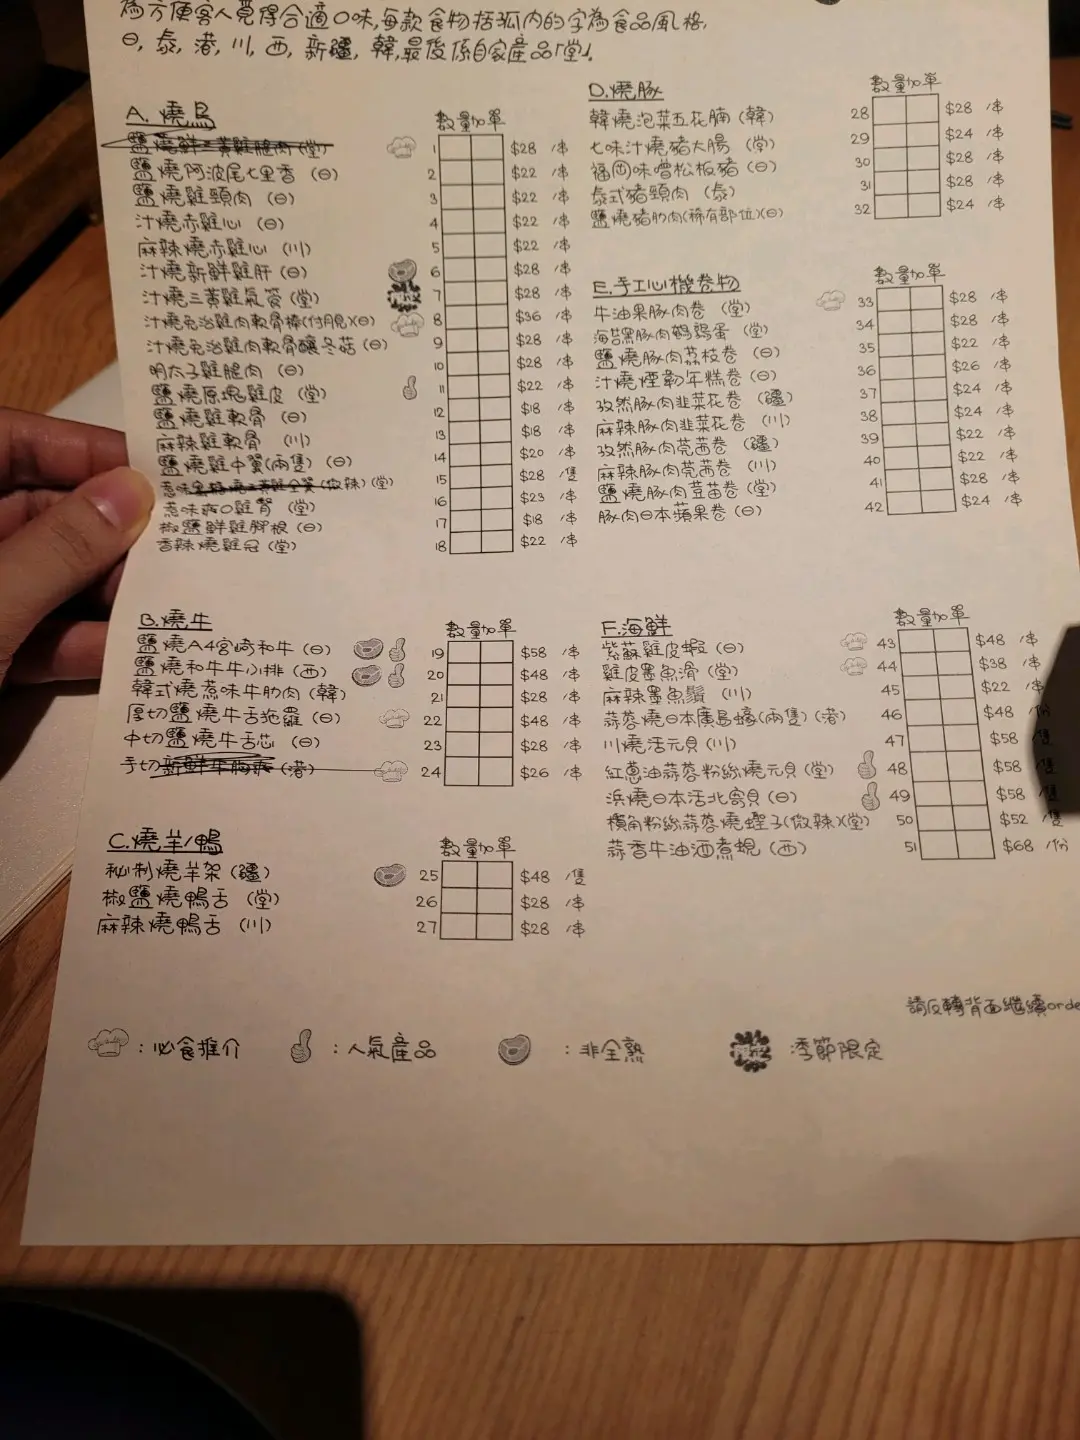 為方便客人覓得合適口味,每款食物括弧內的字為食品風格,
日, 泰, 港, 川, 西, 新疆, 韓, 最後係自家產品「堂」.
A. 燒鳥
數量加單
鹽燒鮮三黃雞腿肉(堂) 1 $28 /串
鹽燒阿波尾七里香 (日) 2 $22 /串
鹽燒雞頸肉 (日) 3 $22 /串
汁燒赤雞心 (日) 4 $22 /串
麻辣燒赤雞心 (川) 5 $22 /串
汁燒新鮮雞肝 (日) 6 $28 /串
汁燒三黃雞氣管 (堂) 7 $28 /串
汁燒免治雞肉軟骨棒(付月見)(日) 8 $36 /串
汁燒免治雞肉軟骨釀冬菇 (日) 9 $28 /串
明太子雞腿肉 (日) 10 $28 /串
鹽燒原塊雞皮 (堂) 11 $22 /串
鹽燒雞軟骨 (日) 12 $18 /串
麻辣雞軟骨 (川) 13 $18 /串
鹽燒雞中翼(兩隻) (日) 14 $20 /串
燒三黃雞全翼(微辣) (堂) 15 $28 /隻
惹味爽口雞腎 (堂) 16 $23 /串
椒鹽鮮雞腳根 (日) 17 $18 /串
香辣燒雞冠 (堂) 18 $22 /串
B. 燒牛
數量加單
鹽燒A4宮崎和牛 (日) 19 $58 /串
鹽燒和牛牛小排 (西) 20 $48 /串
韓式燒惹味牛肋肉 (韓) 21 $28 /串
厚切鹽燒牛舌拖羅 (日) 22 $48 /串
中切鹽燒牛舌芯 (日) 23 $28 /串
手切新鮮牛胸爽 (港) 24 $26 /串
C. 燒羊/鴨
數量加單
秘制燒羊架 (疆) 25 $48 /隻
椒鹽燒鴨舌 (堂) 26 $28 /串
麻辣燒鴨舌 (川) 27 $28 /串
D. 燒豚
數量加單
韓燒泡菜五花腩 (韓) 28 $28 /串
七味汁燒豬大腸 (堂) 29 $24 /串
福岡味噌松板豬 (日) 30 $28 /串
泰式豬頸肉 (泰) 31 $28 /串
鹽燒豬肋肉(稀有部位)(日) 32 $24 /串
E. 手工心機卷物
數量加單
牛油果豚肉卷 (堂) 33 $28 /串
海苔黑豚肉鵪鶉蛋 (堂) 34 $28 /串
鹽燒豚肉荔枝卷 (日) 35 $22 /串
汁燒煙韌年糕卷 (日) 36 $26 /串
孜然豚肉韭菜花卷 (疆) 37 $24 /串
麻辣豚肉韭菜花卷 (川) 38 $24 /串
孜然豚肉芫茜卷 (疆) 39 $22 /串
麻辣豚肉芫茜卷 (川) 40 $22 /串
鹽燒豚肉荳苗卷 (堂) 41 $28 /串
豚肉日本蘋果卷 (日) 42 $24 /串
F. 海鮮
數量加單
紫蘇雞皮蝦 (日) 43 $48 /串
雞皮墨魚滑 (堂) 44 $38 /串
麻辣墨魚鬚 (川) 45 $22 /串
蒜蓉燒日本廣島蠔(兩隻) (港) 46 $48 /份
川燒活元貝 (川) 47 $58 /隻
紅蔥油蒜蓉粉絲燒元貝 (堂) 48 $58 /隻
浜燒日本活北寄貝 (日) 49 $58 /隻
橫角粉絲蒜蓉燒蟶子(微辣)(堂) 50 $52 /隻
蒜香牛油酒煮蜆 (西) 51 $68 /份
請反轉背面繼續orde
: 必食推介 : 人氣產品 : 非全熟 季節限定